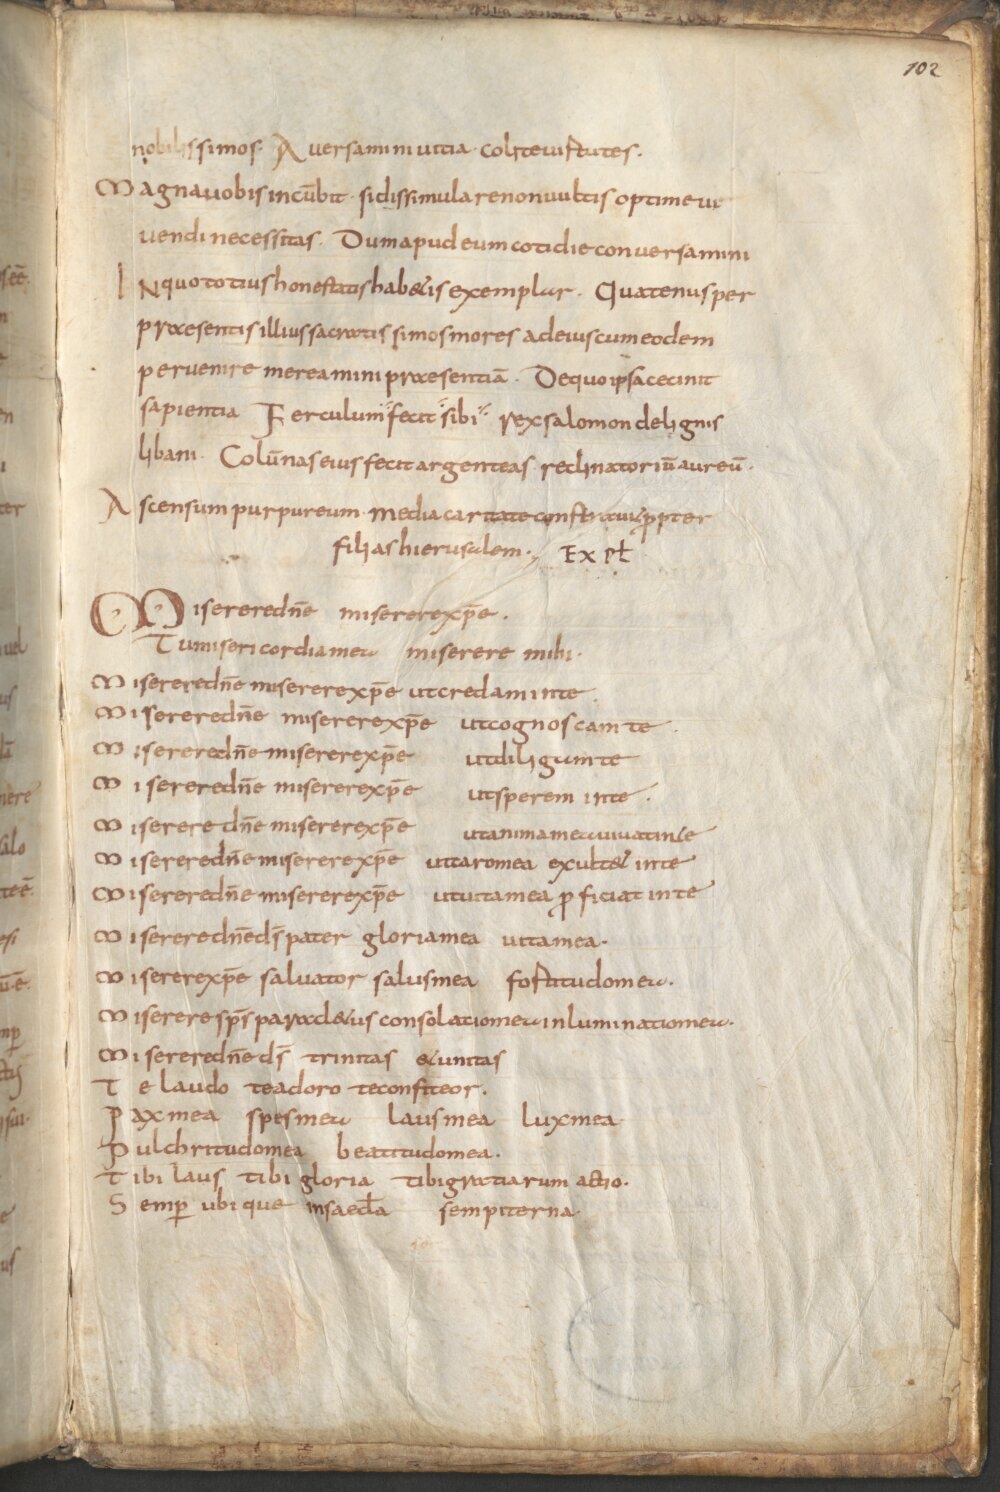 102
nobilissimos. Aversamini vitia colite virtutes.
Magna vobis incūbit si dissimulare non vultis optime vi
vendi necessitas. Dum apud eum cotidie conversamini
IN quo totius honestatis habetis exemplar. Quatenus per
praesentis illius sacratissimos mores ad eius cum eodem
pervenire mereamini praesentiā. De quo ipsa cecinit
sapientia Ferculum fecit sibi rex salomon de lignis
libani. Colūnas eius fecit argenteas reclinatoriū aureū.
Ascensum purpureum media caritate propter
filias hierusalem. Expł
Miserere dn̄e miserere xp̄e.
Tu misericordia mea miserere mihi.
Miserere dn̄e miserere xp̄e ut credam in te
Miserere dn̄e miserere xp̄e ut cognoscam te
Miserere dn̄e miserere xp̄e ut diligam te
Miserere dn̄e miserere xp̄e ut sperem in te.
Miserere dn̄e miserere xp̄e ut anima mea vivat in te
Miserere dn̄e miserere xp̄e ut caro mea exultet in te
Miserere dn̄e miserere xp̄e ut vita mea ꝓficiat in te
Miserere dn̄e ds̄ pater gloria mea vita mea.
Miserere xp̄e salvator salus mea fortitudo mea.
Miserere sps̄ paracletus consolatio mea inluminatio mea.
Miserere dn̄e ds̄ trinitas et unitas
Te laudo te adoro te confiteor.
Pax mea spes mea laus mea lux mea
Pulchritudo mea beatitudo mea.
Tibi laus tibi gloria tibi gratiarum actio.
Semꝑ ubique in saecła sempiterna